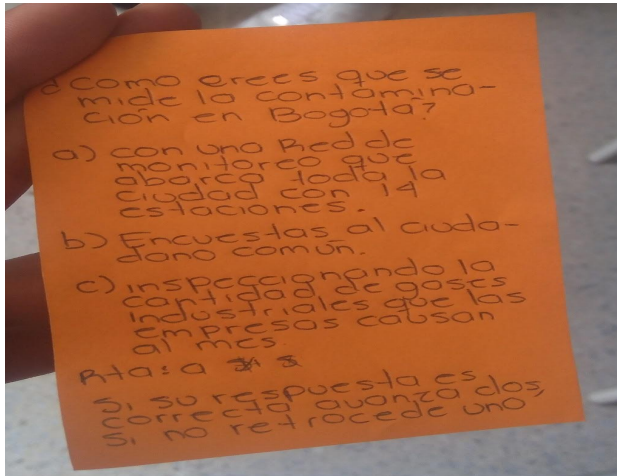 ¿Como crees que se
mide la contamina-
ción en Bogotá?
a) con una Red de
monitoreo que
abarca toda la
ciudad con 14
estaciones.
b) Encuestas al ciuda-
dano común.
c) inspeccionando la
cantidad de gases
industriales que las
empresas causan
al mes
Rta: a
Si su respuesta es
correcta avanza dos,
si no retrocede uno